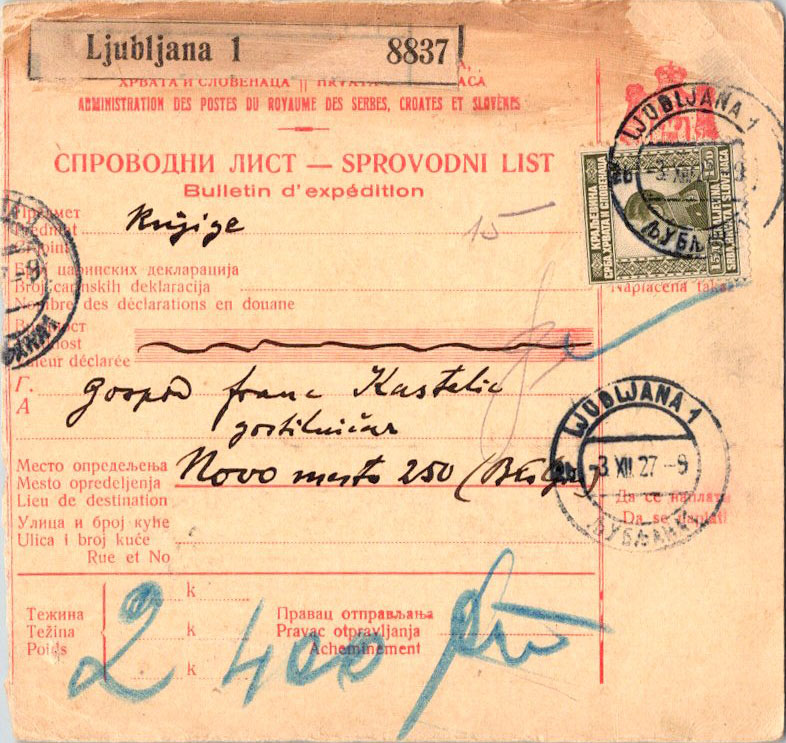 Ljubljana 1 8837
ХРВАТА И СЛОВЕНАЦА
ADMINISTRATION DES POSTES DU ROYAUME DES SERBES, CROATES ET SLOVÈNES
СПРОВОДНИ ЛИСТ — SPROVODNI LIST
Bulletin d'expédition
LJUBLJANA 1
3 XII
ЉУБЉАНА
КРАЉЕВИНА
СРБА ХРВАТА И СЛОВЕНАЦА
KRALJEVINA
Предмет
Predmet Knjige 15
царинских декларација
Broj carinskih deklaracija
Nombre des déclarations en douane
Naplaćena taksa
Valeur déclarée
Г.
А
Gospod Franc Kastelic
gostilničar
Место опредељења
Mesto opredeljenja Novo mesto 250
Lieu de destination
LJUBLJANA 1
2b -3 XII 27 -9
ЉУБЉАНА
Да се наплати
Da se naplati
Улица и број куће
Ulica i broj kuće
Rue et No
Тежина
Težina
Poids
k
k
k
Правац отправљања
Pravac otpravljanja
Acheminement
2 400